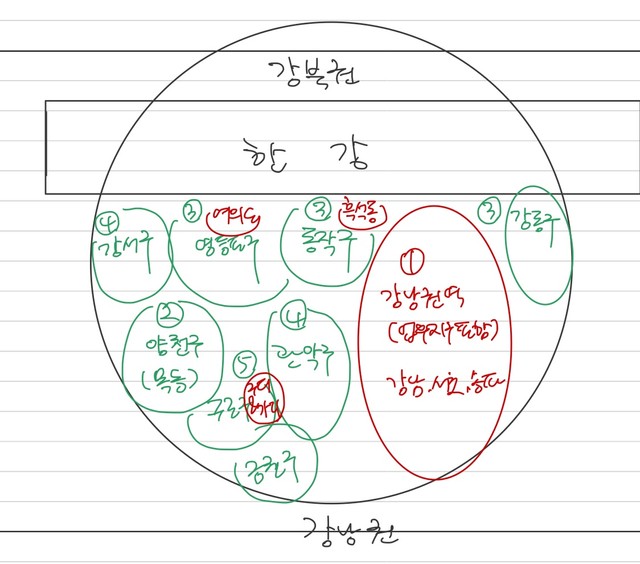 강북권
한 강
④
강서구
③ 여의도
영등포구
③ 흑석동
동작구
③
강동구
①
강남권역
(업무지구포함)
강남, 서초, 송파
②
양천구
(목동)
④
관악구
⑤
구로구
금천구
강남권